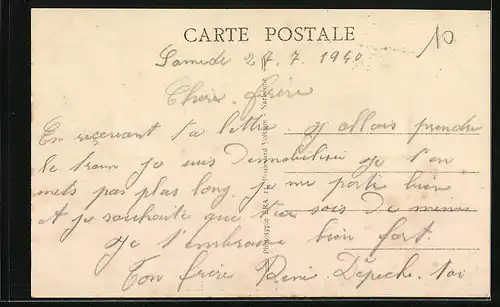 CARTE POSTALE
10
Samedi 27.7.1940
Cher frère
En recevant ta lettre j'allais prendre
le train je suis démobilisé je t'en
mets pas plus long je me porte bien
et je souhaite que tu sois de même
Je t'embrasse bien fort.
Ton frère René. Dépêche-toi
Narbonne